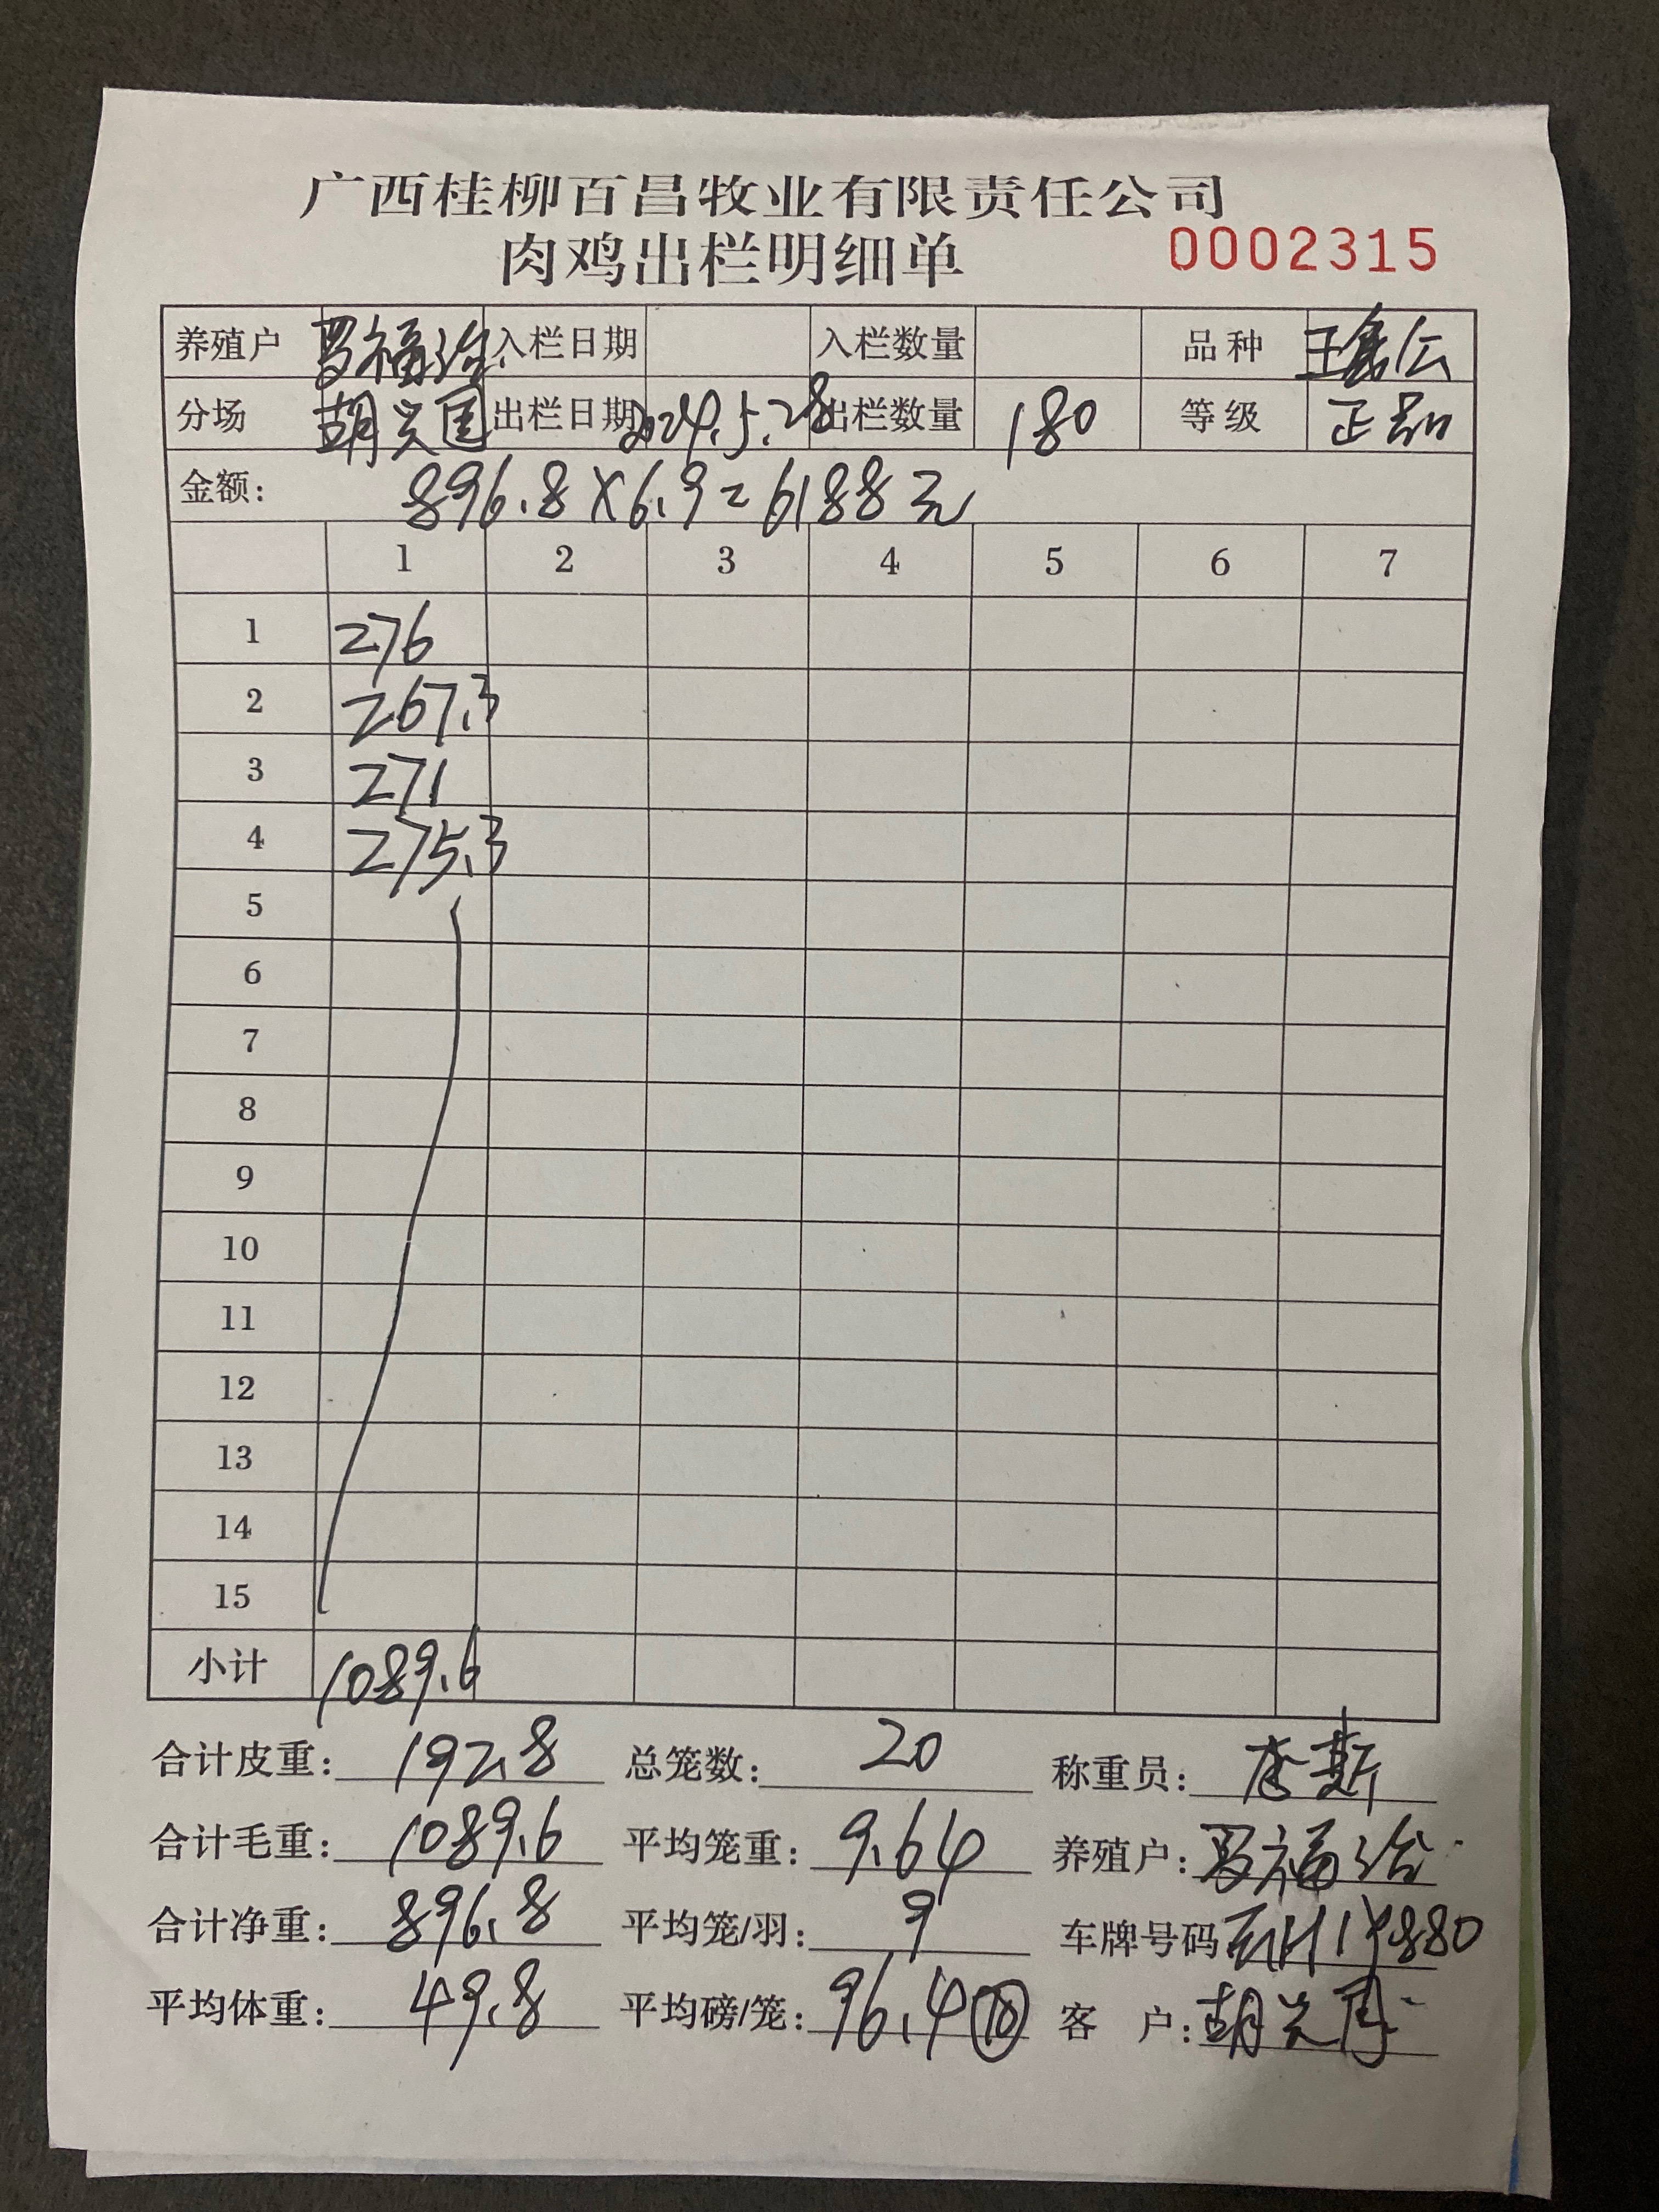 广西桂柳百昌牧业有限责任公司
肉鸡出栏明细单 0002315
养殖户 罗福治 入栏日期 入栏数量 品种
分场 胡兴国 出栏日期 2024.5.28 出栏数量 180 等级 正品
金额: 896.8×6.9=6188元
1 2 3 4 5 6 7
1 276
2 267.3
3 271
4 275.3
5
6
7
8
9
10
11
12
13
14
15
小计 1089.6
合计皮重: 192.8 总笼数: 20 称重员: 李斯
合计毛重: 1089.6 平均笼重: 9.64 养殖户: 罗福治
合计净重: 896.8 平均笼/羽: 9 车牌号码
平均体重: 49.8 平均磅/笼: 96.4 ⑩ 客户: 胡兴国